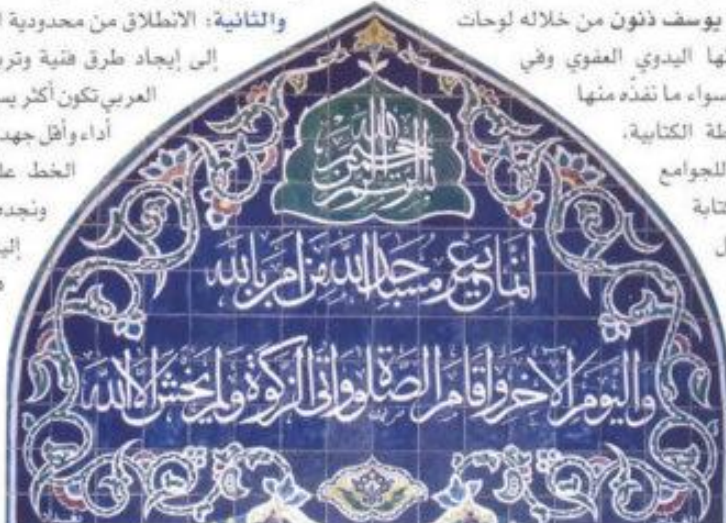 يوسف ذنون من خلاله لوحات
اليدوي العفوي وفي
سواء ما نفذه منها
الكتابية،
للجوامع
والثانية: الانطلاق من محدودية
إلى إيجاد طرق فنية
العربي تكون أكثر
أداء وأقل جهد
الخط
ونجده
بسم الله الرحمن الرحيم
انما يعمر مساجد الله من امن بالله
واليوم الاخر واقام الصلوة واتى الزكوة ولم يخش الا الله